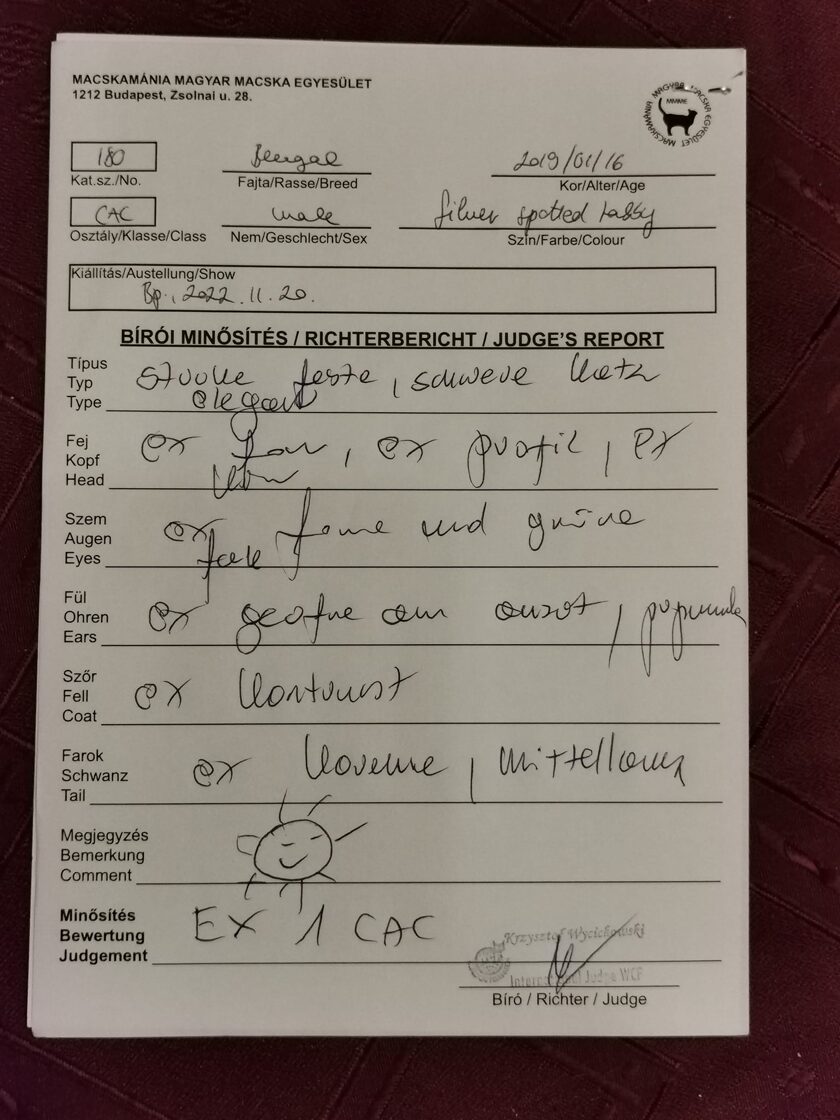 MACSKAMÁNIA MAGYAR MACSKA EGYESÜLET
1212 Budapest, Zsolnai u. 28.
MACSKAMÁNIA MAGYAR MACSKA EGYESÜLET
MMME
180 Bengal 2019/01/16
Kat.sz./No. Fajta/Rasse/Breed Kor/Alter/Age
CAC male Silver spotted tabby
Osztály/Klasse/Class Nem/Geschlecht/Sex Szín/Farbe/Colour
Kiállítás/Austellung/Show
Bp., 2022.11.20.
BÍRÓI MINŐSÍTÉS / RICHTERBERICHT / JUDGE'S REPORT
Típus
Typ
Type
feste, schwere
elegant
Fej
Kopf
Head
ex , ex profil, ex
Szem
Augen
Eyes
ex und grüne
Fül
Ohren
Ears
ex
Szőr
Fell
Coat
ex Kontrast
Farok
Schwanz
Tail
ex , mittellang
Megjegyzés
Bemerkung
Comment
Minősítés
Bewertung
Judgement
EX 1 CAC
Krzysztof Wycickowski
International Judge WCF
Bíró / Richter / Judge